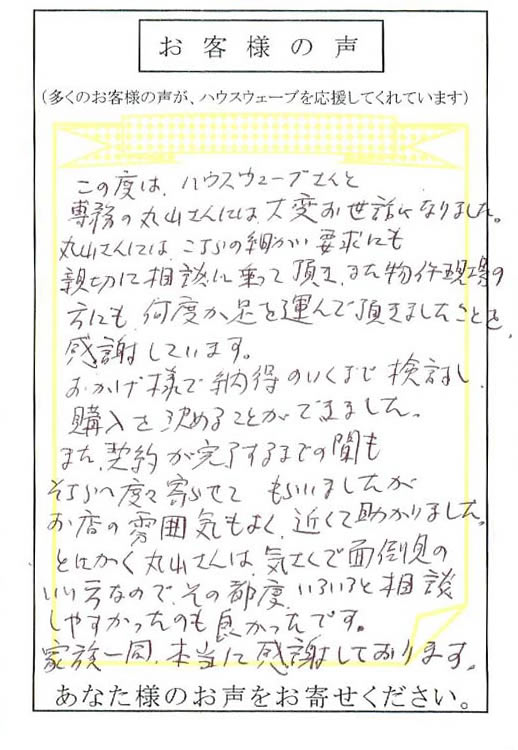 お客様の声
（多くのお客様の声が、ハウスウェーブを応援してくれています）
この度は、ハウスウェーブさんと
専務の丸山さんには、大変お世話になりました。
丸山さんには、こちらの細かい要求にも
親切に相談に乗って頂き、また物件現場の
方にも、何度か足を運んで頂きましたことを、
感謝しています。
おかげ様で納得のいくまで検討し、
購入を決めることができました。
また、契約が完了するまでの間も
そちらへ度々寄らせて もらいましたが
お店の雰囲気もよく、近くて助かりました。
とにかく丸山さんは、気さくで面倒見の
いい方なので、その都度、いろいろと相談
しやすかったのも良かったです。
家族一同、本当に感謝しております。
あなた様のお声をお寄せください。